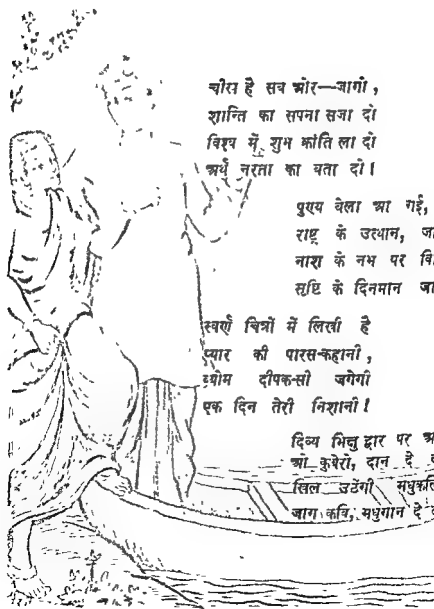 है सब ओर—जागो,
शान्ति का सपना सजा दो
विश्व में शुभ क्रांति ला दो
अर्थ नरता का बता दो!
पुण्य वेला आ गई,
राष्ट्र के उत्थान, जा
नाश के नभ पर वि
सृष्टि के दिनमान जा
स्वर्ण चित्रों में लिखी है
प्यार की पारस-कहानी,
व्योम दीपक-सी जगेगी
एक दिन तेरी निशानी!
दिव्य भिक्षु द्वार पर अ
ओ कुबेरो, दान दे
खिल उठेंगी मधुकलि
जाग कवि, मधुगान दे